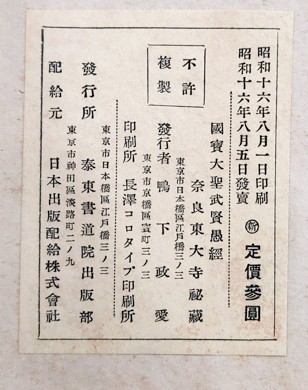 昭和十六年八月一日印刷
昭和十六年八月五日發賣
㊞ 定價參圓
國寶大聖武賢愚經
奈良東大寺秘藏
不許
複製
東京市日本橋區江戸橋三ノ三
發行者 鴨下政愛
東京市京橋區寳町三ノ三
印刷所 長澤コロタイプ印刷所
東京市日本橋區江戸橋三ノ三
發行所 泰東書道院出版部
東京市神田區淡路町二ノ九
配給元 日本出版配給株式會社